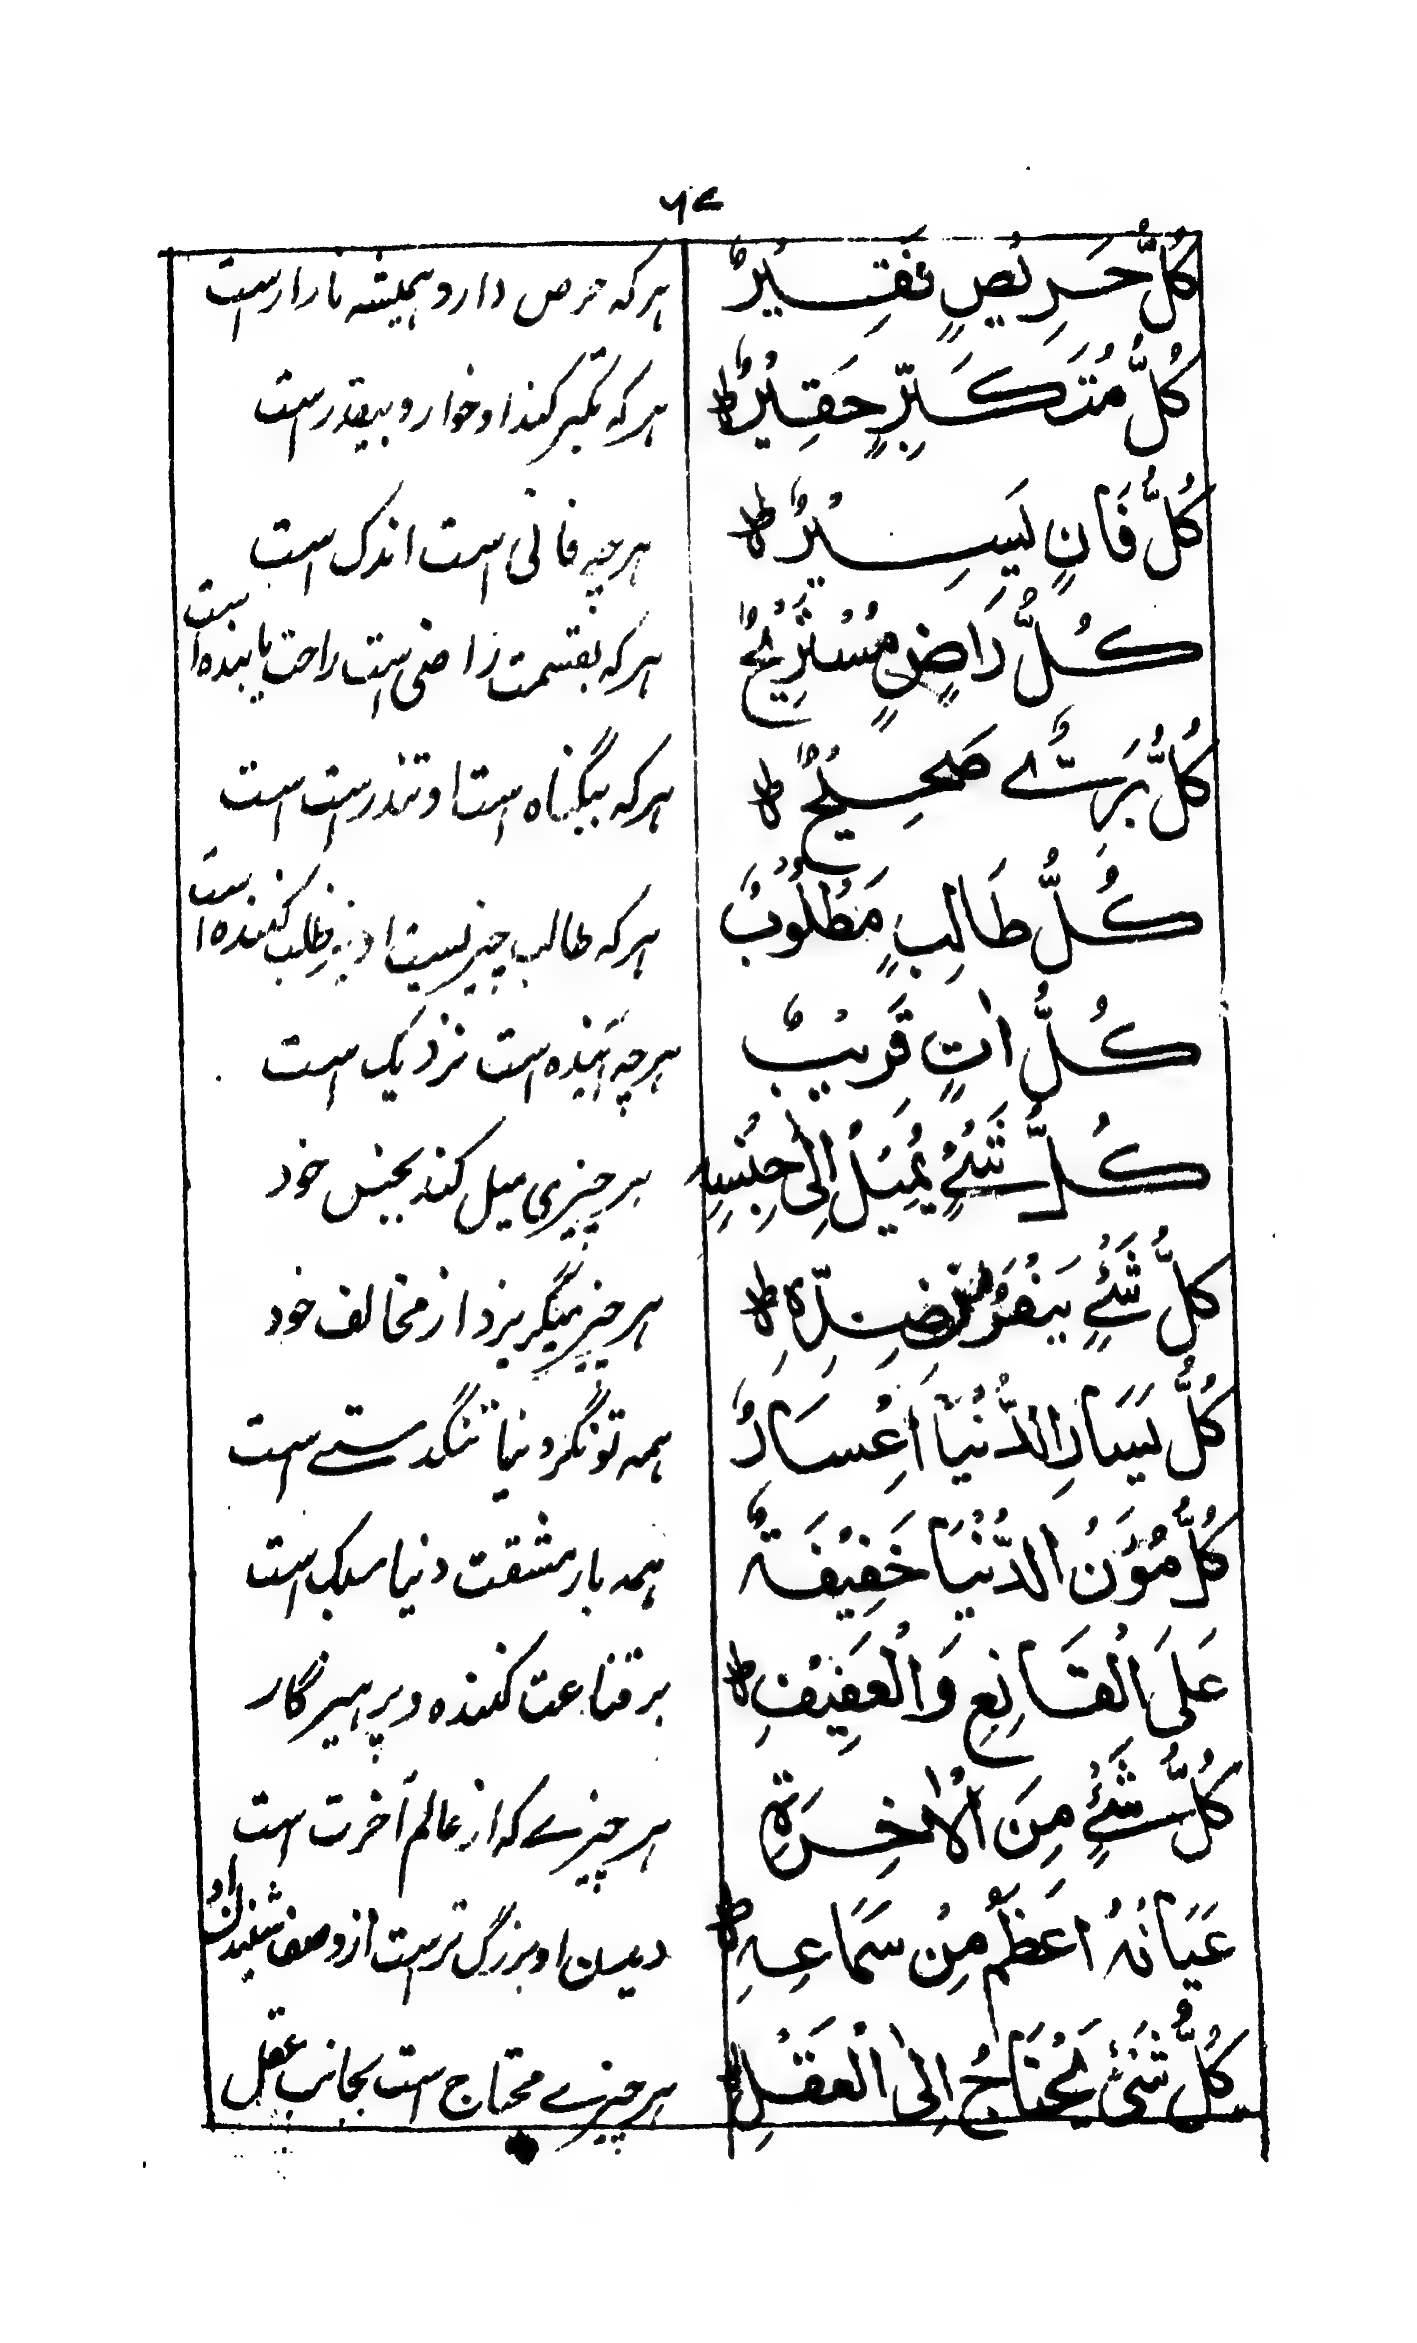 ٦٧
كُلُّ حَرِيْصٍ فَقِيْرٌ هرکه حرص دارد همیشه نادارست
كُلُّ مُتَكَبِّرٍ حَقِيْرٌ ط هرکه تکبر کند او خوار و بیقدرست
كُلُّ فَانٍ يَسِيْرٌ ط هرچه فانی است اندک است
كُلُّ رَاضٍ مُسْتَرِيْحٌ هرکه بقسمت راضی است راحت یابنده است
كُلُّ بَرِىْءٍ صَحِيْحٌ ط هرکه بیگناه است او تندرست است
كُلُّ طَالِبٍ مَطْلُوْبٌ هرکه طالب چیزیست او نیز طلب کننده است
كُلُّ اٰتٍ قَرِيْبٌ هرچه آینده است نزدیک است
كُلُّ شَيْءٍ يَمِيْلُ اِلٰى جِنْسِهِ هر چیزی میل کند بجنس خود
كُلُّ شَيْءٍ يَنْفُرُ مِنْ ضِدِّهٖ ط هر چیز میگریزد از مخالف خود
كُلُّ يَسَارِ الدُّنْيَا اِعْسَارٌ همه تونگر دنیا تنگدستے است
كُلُّ مُؤَنُ الدُّنْيَا خَفِيْفَةٌ همه بار مشقت دنیا سبک است
عَلَى الْقَانِعِ وَالْعَفِيْفِ ط بر قناعت کننده و پرهیزگار
كُلُّ شَيْءٍ مِنَ الْاٰخِرَةِ هر چیزے که از عالم آخرت است
عَيَانُهُ اَعْظَمُ مِنْ سَمَاعِهِ ط دیدن او بزرگ ترست از وصف شنیدن او
كُلُّ شَىْءٍ يَحْتَاجُ اِلٰى الْعَقْلِ هر چیزے محتاج است بجانب عقل